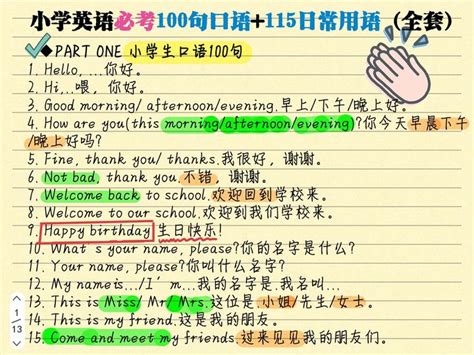 小学英语必考100句口语+115日常用语（全套）
PART ONE 小学生口语100句
1. Hello, ...你好。
2. Hi...喂，你好。
3. Good morning/ afternoon/evening.早上/下午/晚上好。
4. How are you(this morning/afternoon/evening)?你今天早晨下午
/晚上好吗?
5. Fine, thank you/ thanks.我很好，谢谢。
6. Not bad, thank you.不错，谢谢。
7. Welcome back to school.欢迎回到学校来。
8. Welcome to our school.欢迎到我们学校来。
9. Happy birthday 生日快乐!
10. What's your name, please?你的名字是什么?
11. Your name, please?你叫什么名字?
12. My name is.../I'm...我的名字是.我名叫...
13. This is Miss/ Mr/ Mrs.这位是 小姐/先生/女士。
14. This is my friend.这是我的朋友。
15. Come and meet my friends.过来见见我的朋友们。
1
13